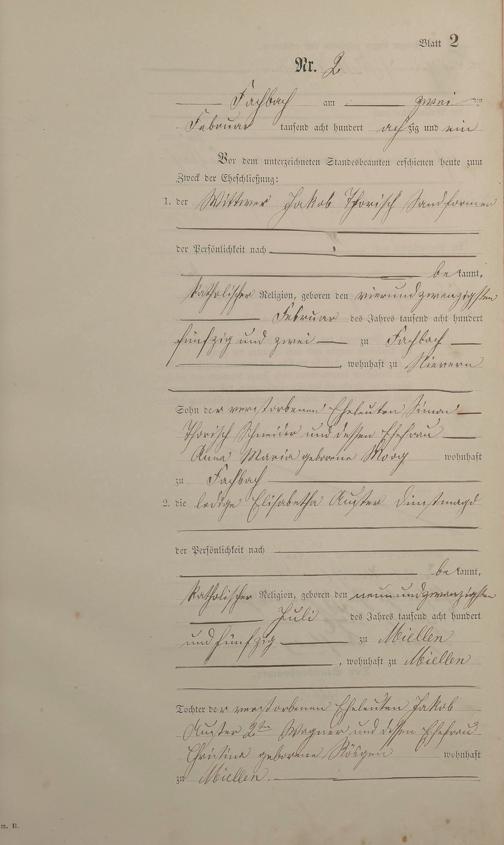 Blatt 2
Nr. 2
Fachbach am zwei
Februar tausend acht hundert achzig und ein
Vor dem unterzeichneten Standesbeamten erschienen heute zum
Zweck der Eheschließung:
1. der Wittwer Jakob Thorisch Sandformer
der Persönlichkeit nach
be kannt,
katholischer Religion, geboren den vierundzwanzigsten
Februar des Jahres tausend acht hundert
fünfzig und zwei zu Fachbach
, wohnhaft zu Nievern
Sohn der verstorbenen Eheleuten Simon
Thorisch Schneider und dessen Ehefrau
Anna Maria geborene Morg wohnhaft
zu Fachbach
2. die ledige Elisabetha Auster Dienstmagd
der Persönlichkeit nach
be kannt,
katholischer Religion, geboren den neunundzwanzigsten
Juli des Jahres tausend acht hundert
und fünfzig zu Miellen
, wohnhaft zu Miellen
Tochter der verstorbenen Eheleuten Jakob
Auster 2ten Wagner und dessen Ehefrau
Christine geborene wohnhaft
zu Miellen.
m. R.